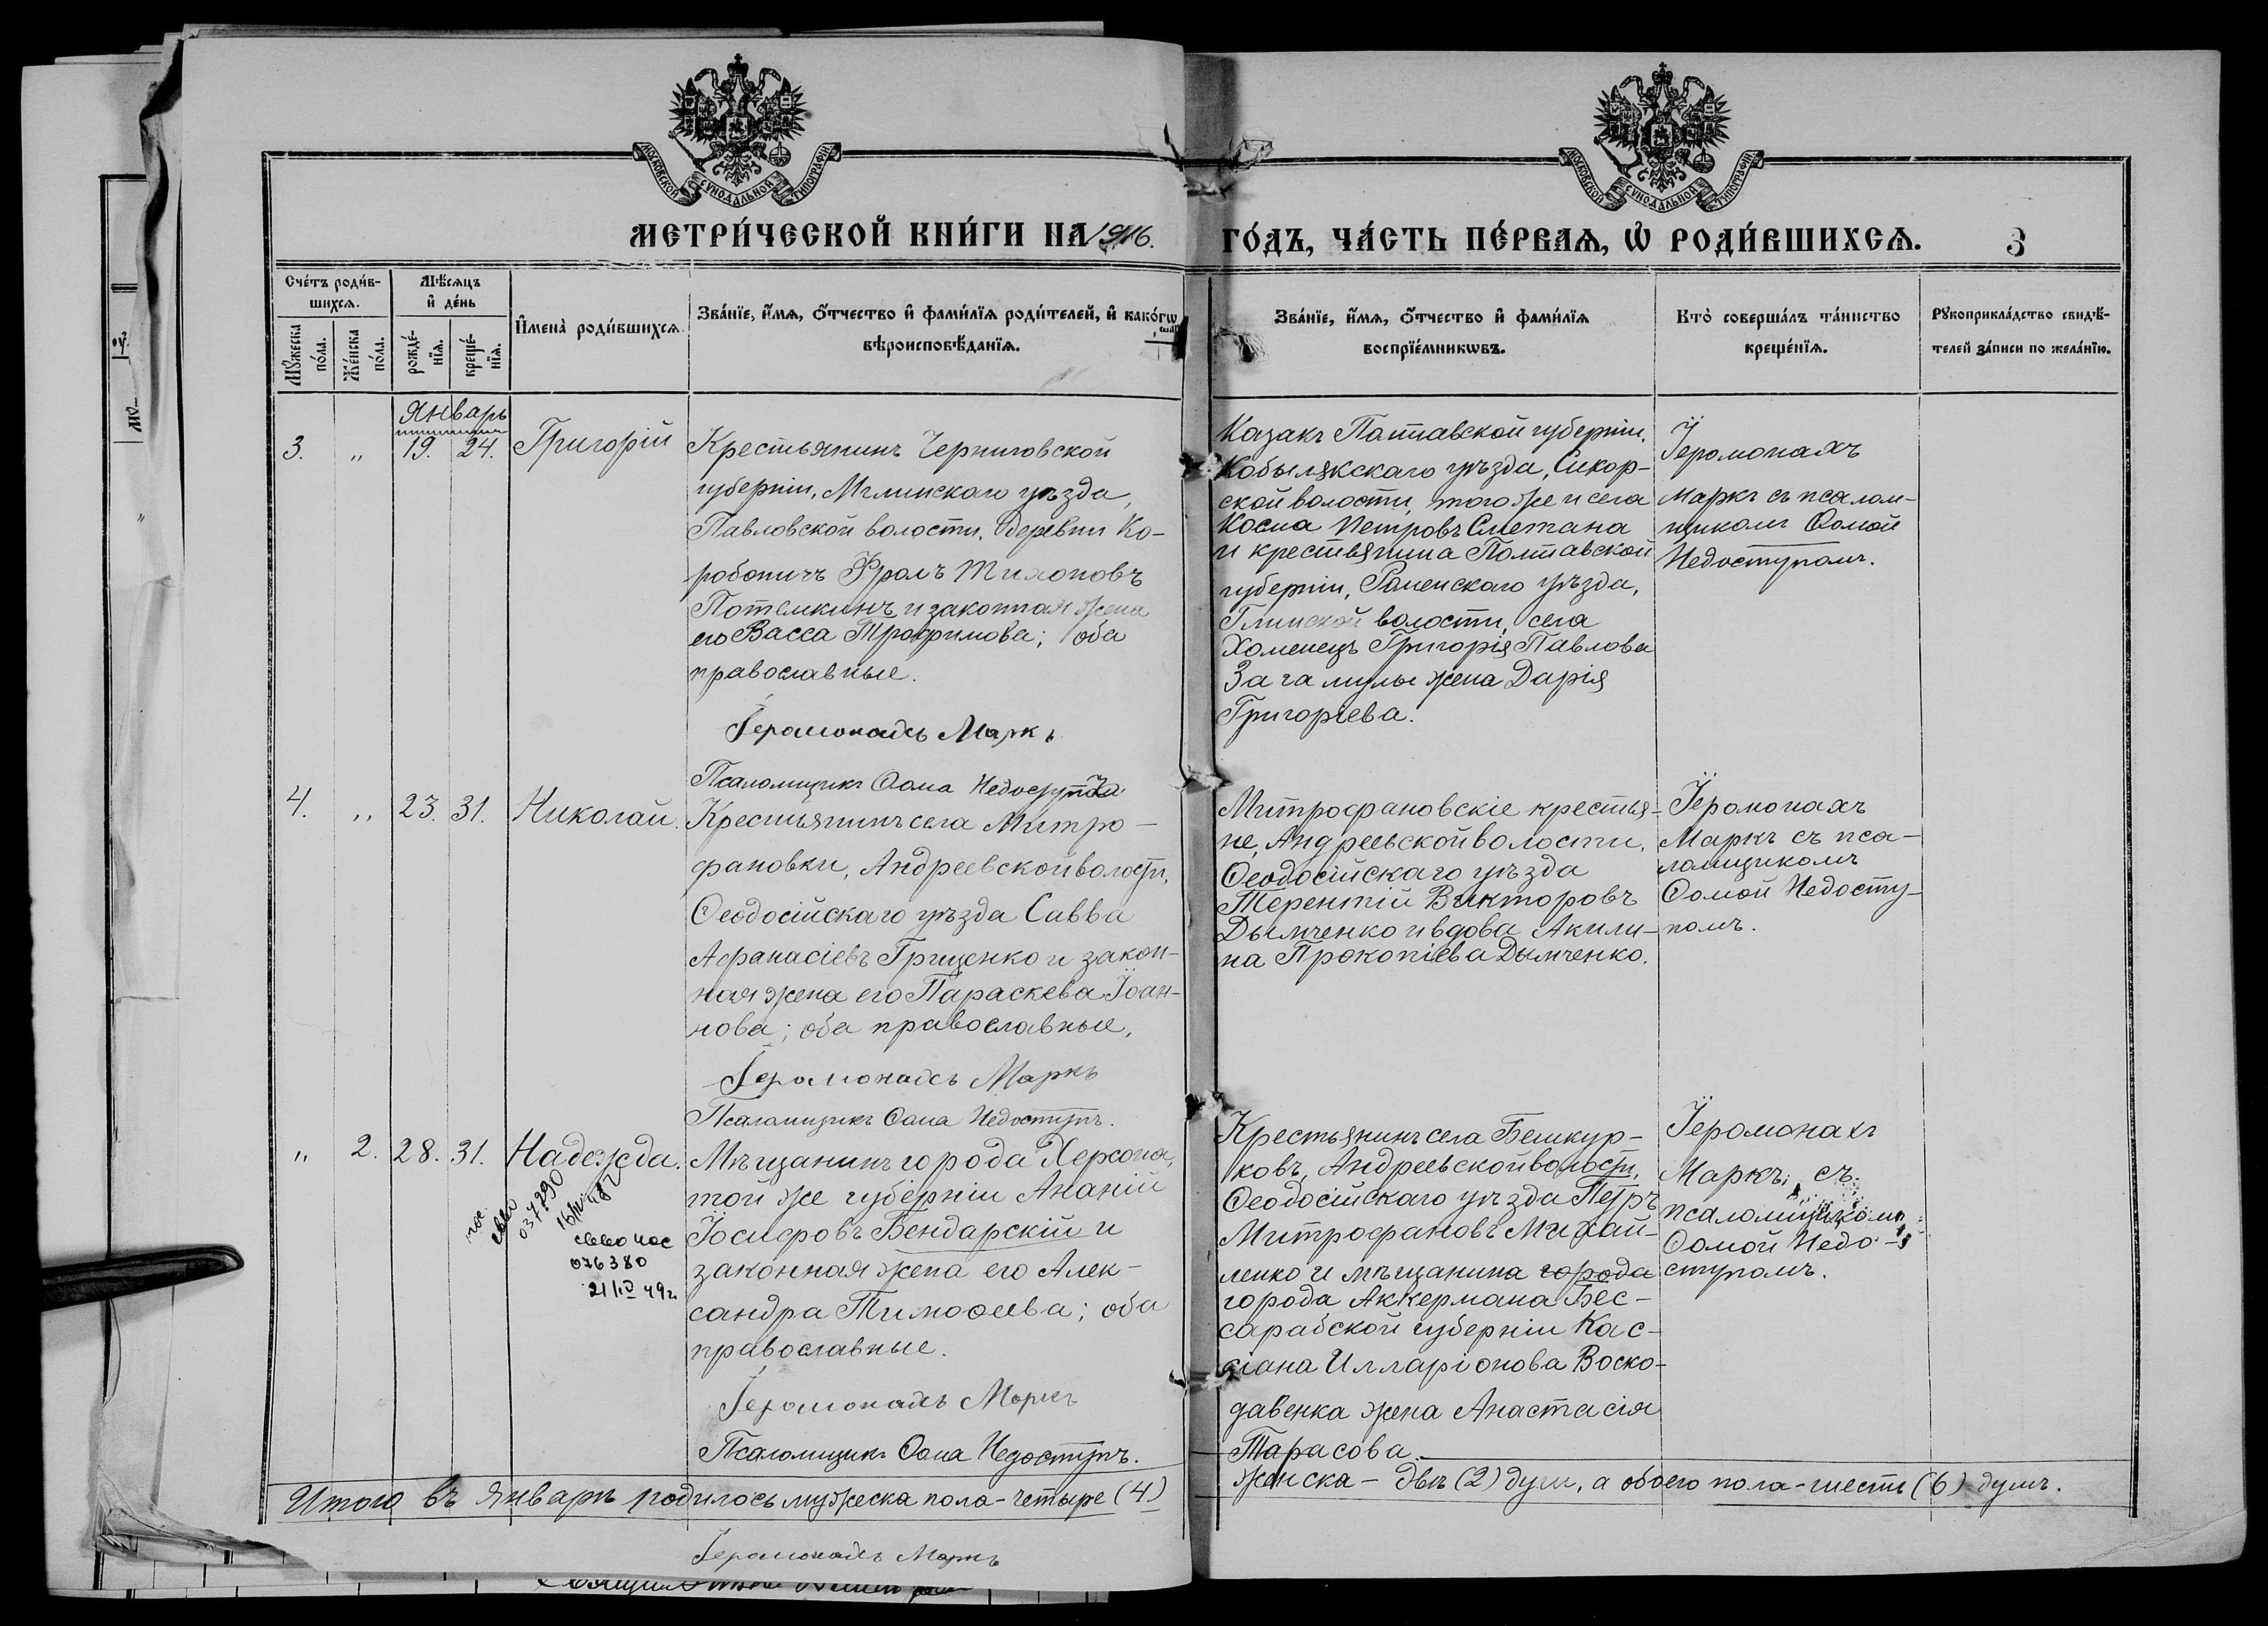 МОСКОВСКОЙ СѴНОДАЛЬНОЙ ТИПОГРАФІИ
МОСКОВСКОЙ СѴНОДАЛЬНОЙ ТИПОГРАФІИ
МЕТРИ́ЧЕСКОЙ КНИ́ГИ НА 1916. ГО́ДЪ, ЧА́СТЬ ПЕ́РВАѦ, Ѡ РОДИ́ВШИХСѦ. 3
Сче́тъ роди́в-
шихсѧ.
Мꙋ́жеска по́ла.
Же́нска по́ла.
Мѣ́сѧцъ
и҆ де́нь
рожде́-
нїѧ.
креще́-
нїѧ.
И҆мена̀ роди́вшихсѧ.
Зва́нїе, и҆́мѧ, о҆́тчество и҆ фами́лїѧ роди́телей, и҆ како́гѡ
вѣроисповѣ́данїѧ.
Зва́нїе, и҆́мѧ, о҆́тчество и҆ фами́лїѧ
воспрїе́мникѡвъ.
Кто̀ соверша́лъ та́инство
креще́нїѧ.
Рꙋкоприкла́дство свидѣ́-
телей за́писи по жела́нїю.
Январь
3. „ 19. 24. Григорій
Крестьянинъ Черниговской
губерніи, Мглинскаго уѣзда,
Павловской волости, деревни Ко-
робоничъ Фролъ Тихоновъ
Потемкинъ и законная жена
его Васса Трофимова; оба
православные.
Іеромонахъ Маркъ
Псаломщикъ Ѳома Недоступъ
Казакъ Полтавской губерніи,
Кобылякскаго уѣзда, Сокор-
ской волости, того же и села
Косма Петровъ Сметана
и крестьянина Полтавской
губерніи, Роменскаго уѣзда,
Глинской волости, села
Хоменецъ Григорія Павлова
Загамулы жена Дарія
Григорьева.
Іеромонахъ
Маркъ съ псалом-
щикомъ Ѳомой
Недоступомъ.
4. „ 23. 31. Николай.
Крестьянинъ села Митро-
фановки, Андреевской волости,
Ѳеодосійскаго уѣзда Савва
Афанасіевъ Гриценко и закон-
ная жена его Параскева Іоан-
нова; оба православные,
Іеромонахъ Маркъ
Псаломщикъ Ѳома Недоступъ.
Митрофановскіе крестья-
не, Андреевской волости,
Ѳеодосійскаго уѣзда
Терентій Викторовъ
Дымченко и вдова Акили-
на Прокопіева Дымченко.
Іеромонахъ
Маркъ съ пса-
ломщикомъ
Ѳомой Недосту-
помъ.
„ 2. 28. 31. Надежда.
037290
076380
21/IV 49г
Мѣщанинъ города Херсона,
той же губерніи Ананій
Іосифовъ Бендарскій и
законная жена его Алек-
сандра Тимофеева; оба
православные.
Іеромонахъ Маркъ
Псаломщикъ Ѳома Недоступъ.
Крестьянинъ села Бешкур-
ковъ, Андреевской волости,
Ѳеодосійскаго уѣзда Петръ
Митрофановъ Михай-
ленко и мѣщанина города
города Аккермана Бес-
сарабской губерніи Кас-
сіана Илларіонова Воско-
давенка жена Анастасія
Тарасова.
Іеромонахъ
Маркъ, съ
псаломщикомъ
Ѳомой Недо-
ступомъ.
Итого въ январѣ родилось мужеска пола - четыре (4)
женска - двѣ (2) души, а обоего пола - шесть (6) душъ.
Іеромонахъ Маркъ